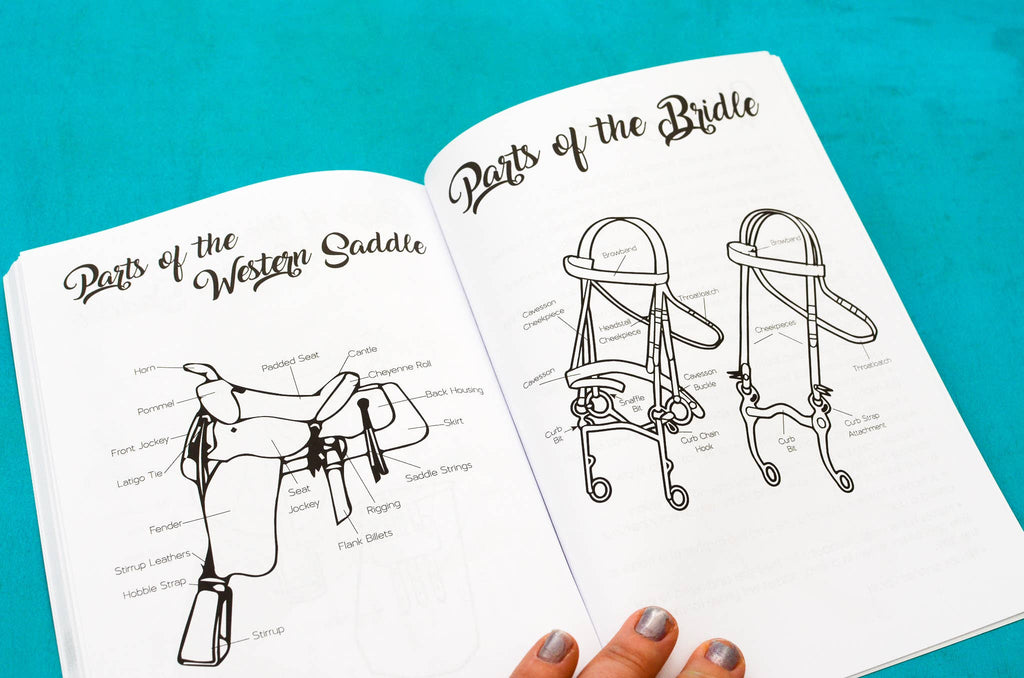 Parts of the
Western Saddle
Horn
Padded Seat
Cantle
Cheyenne Roll
Pommel
Back Housing
Front Jockey
Skirt
Latigo Tie
Saddle Strings
Seat
Jockey
Rigging
Fender
Flank Billets
Stirrup Leathers
Hobble Strap
Stirrup
Parts of the Bridle
Browband
Cavesson
Cheekpiece
Headstall
Cheekpiece
Throatlatch
Cavesson
Snaffle
Bit
Cavesson
Buckle
Curb
Bit
Curb Chain
Hook
Browband
Cheekpieces
Throatlatch
Curb
Bit
Curb Strap
Attachment